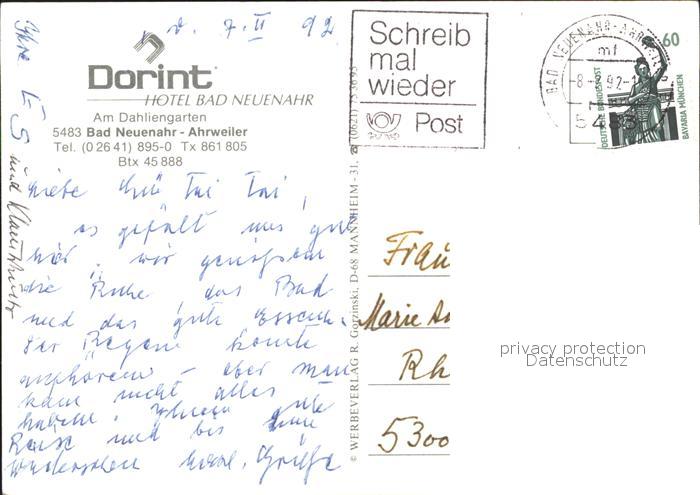 v. 7. II 92
Dorint
HOTEL BAD NEUENAHR
Am Dahliengarten
5483 Bad Neuenahr - Ahrweiler
Tel. (0 26 41) 895-0 Tx 861 805
Btx 45 888
Schreib
mal
wieder
Post
BAD NEUENAHR-AHRWEILER
mf
-8.-2.92-1
5483
60
DEUTSCHE BUNDESPOST
BAVARIA MÜNCHEN
Liebe Tai Tai,
es gefällt uns gut
hier, wir genießen
die Ruhe, das Bad
und das gute Essen.
Der Regen könnte
aufhören - aber man
kann nicht alles
haben. Ihnen gute
Reise und bis zum
Wiedersehen Grüße
Ihre
und
© WERBEVERLAG R. Gorzinski, D-68 MANNHEIM-31, ☎ (0621) 75 30 95
Frau
Marie
Rh
5300
privacy protection
Datenschutz